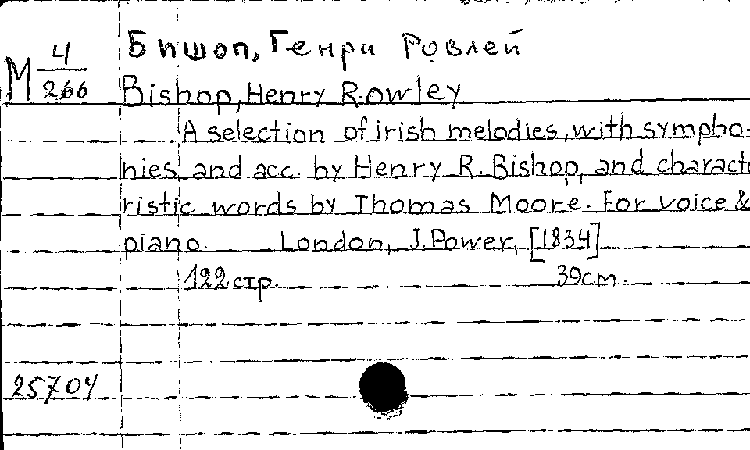 М 4/266
Бишоп, Генри Ровлей
Bishop, Henry Rowley
A selection of irish melodies, with sympho-
nies and acc. by Henry R. Bishop, and characte
ristic words by Thomas Moore. For voice &
piano. London, J. Power, [1834]
122 стр. 39 cm.
25704